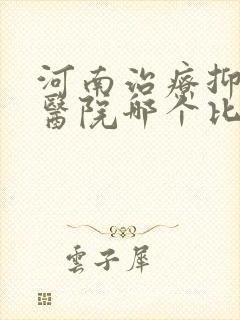 河南治療抑
醫院哪个比
雲子犀